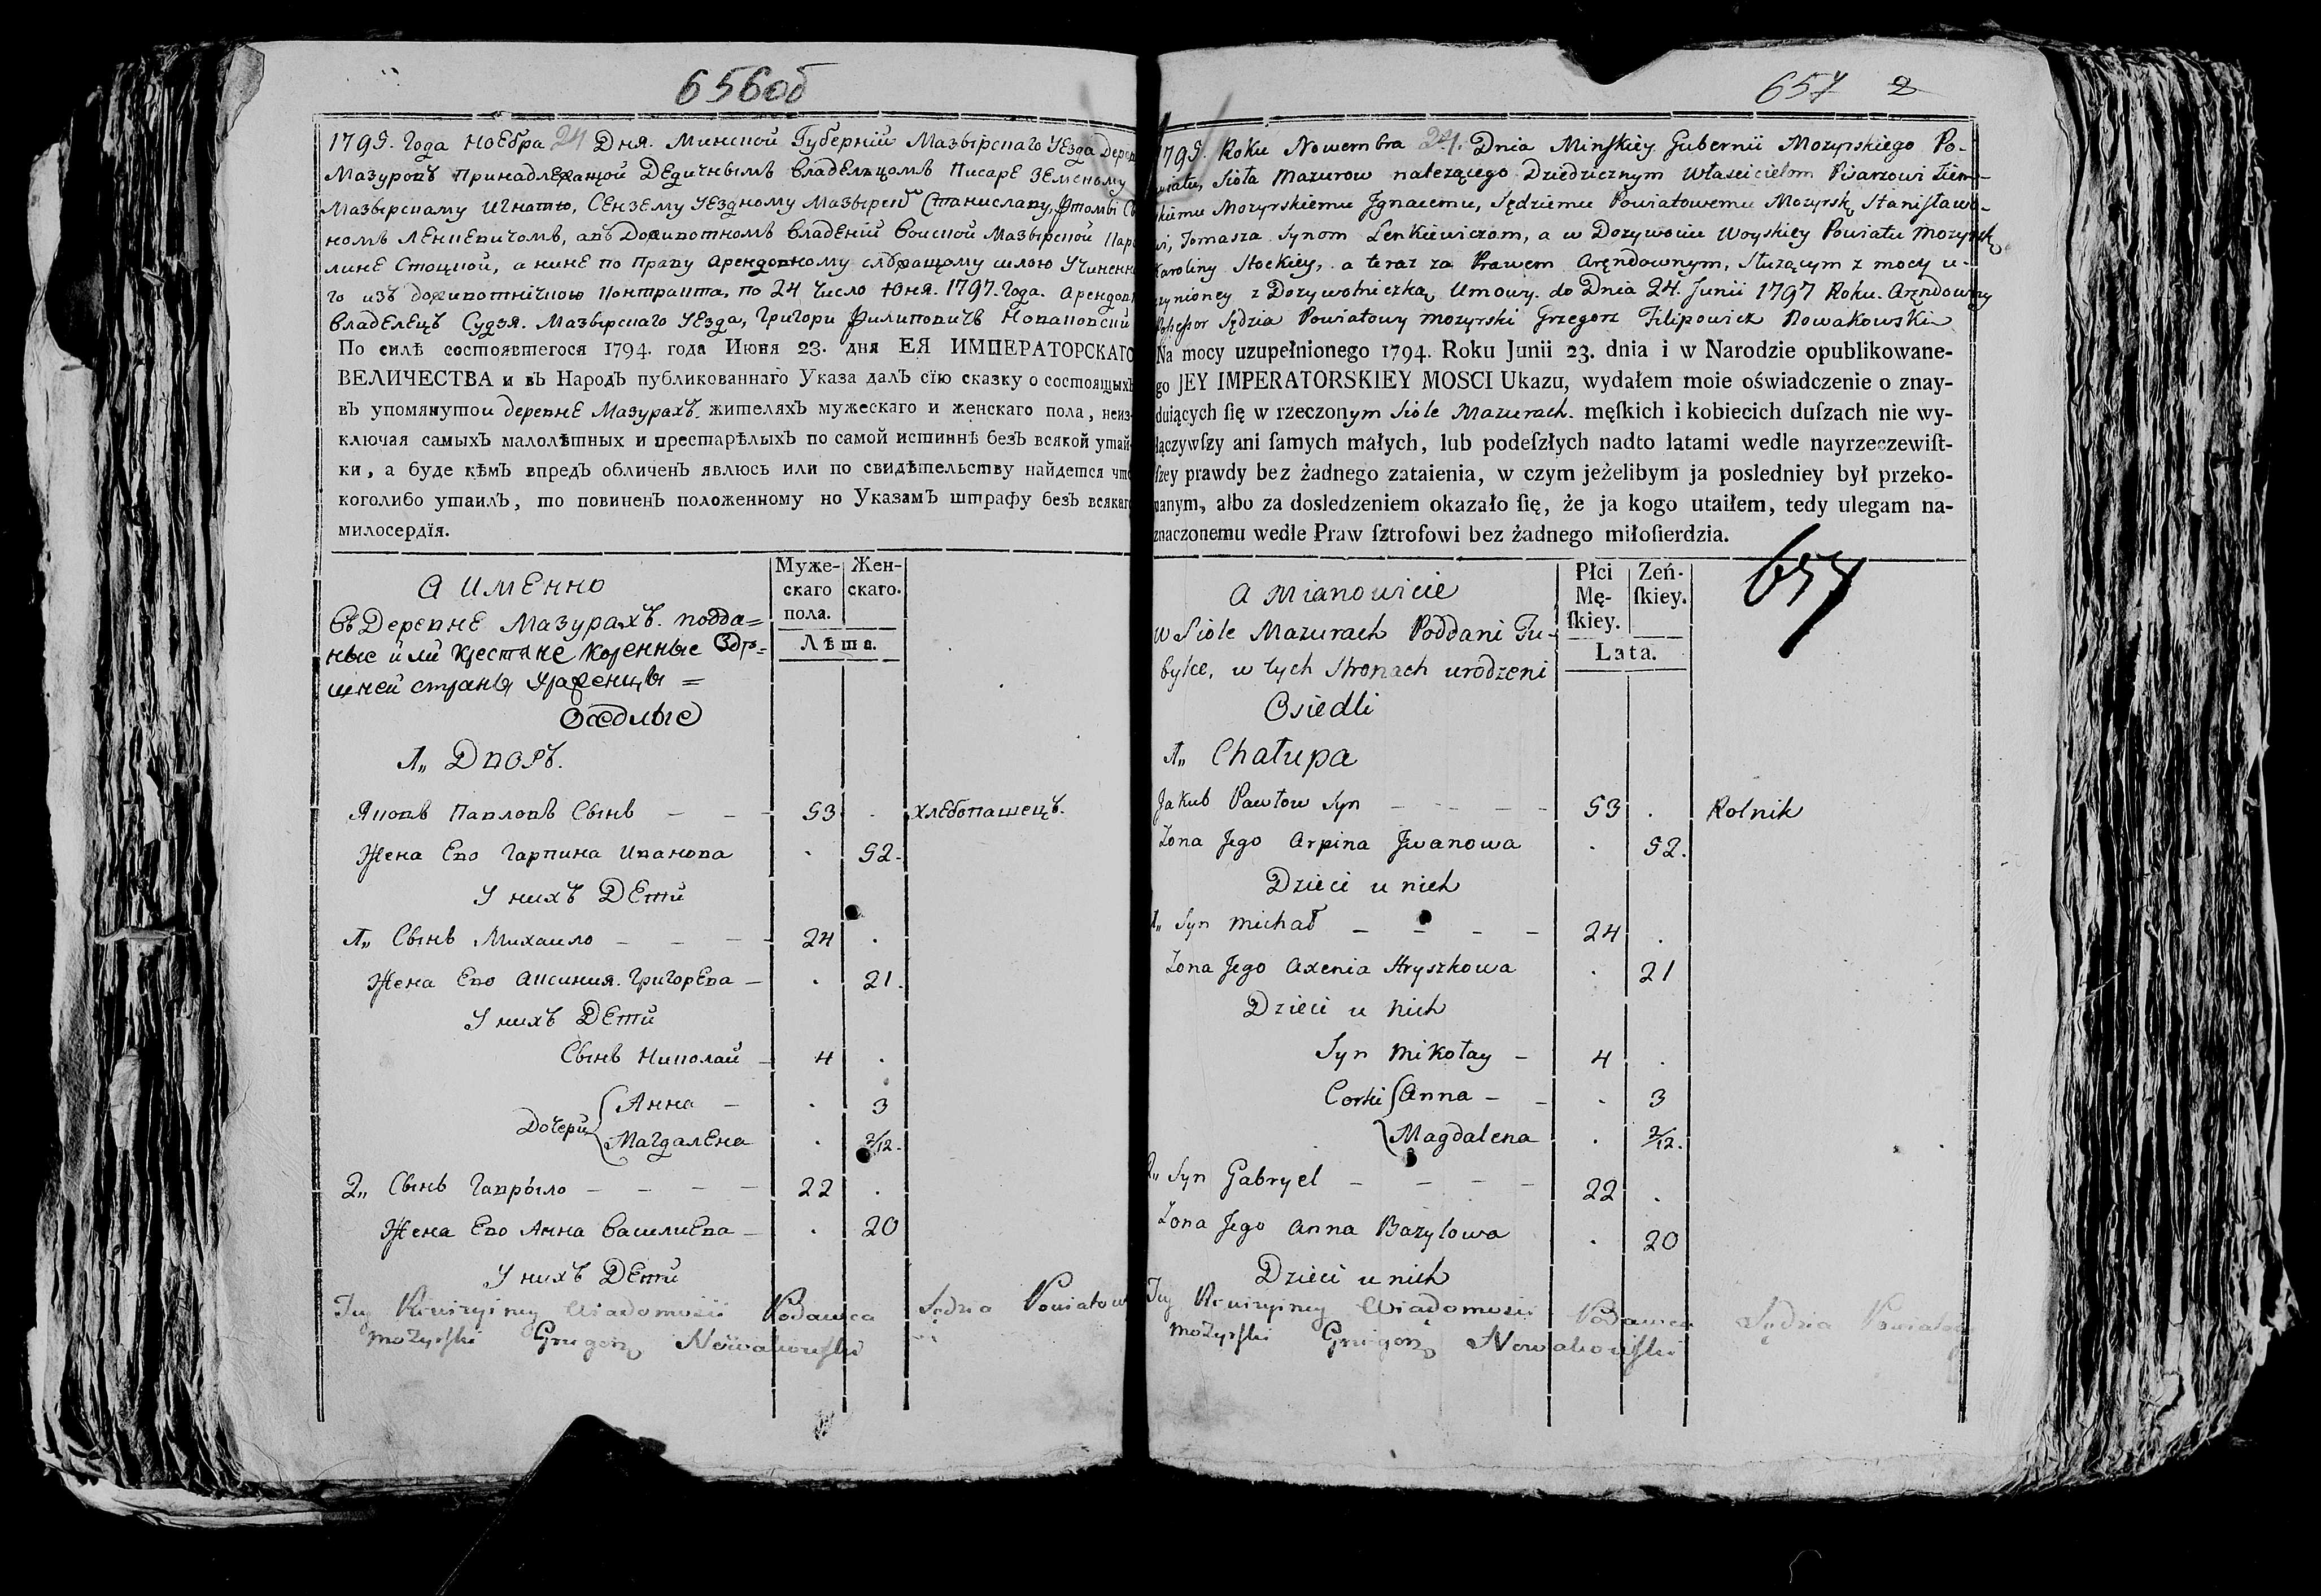 656об
1795. Года Ноебра 24 Дня. Минской Губерніи Мазырскаго Уезда дерев
Мазуровъ принадлежащой Дедичнымъ владелцомъ Писаре Земскому
Мазырскому Игнатію, Сензему Уездному Мазырско Станиславу, Фтомы
номъ Ленкевичомъ, авъ Доживотномъ владении Воиской Мазырской Каро
лине Стоцкой, а нине по праву арендовному служащому силою Учиненна
го изъ доживотнічкою контракта, по 24 число Юня. 1797. Года. Арендовн
владелецъ Судзя. Мазырскаго Уезда, Григори Филиповичъ Новаковски
По силѣ состоявшегося 1794. года Июня 23. дня ЕЯ ИМПЕРАТОРСКАГО
ВЕЛИЧЕСТВА и въ Народъ публикованнаго Указа далъ сїю сказку о состоящыхъ
въ упомянутои деревне Мазурахъ. жителяхъ мужескаго и женскаго пола, неиз-
ключая самыхъ малолѣтных и престарѣлыхъ по самой истиннѣ безъ всякой утай-
ки, а буде кѣмъ впредъ обличенъ явлюсь или по свидѣтельству найдется что
коголибо утаилъ, то повиненъ положенному но Указамъ штрафу безъ всякаго
милосердїя.
а именно
Муже-
скаго
пола.
Жен-
скаго.
Лѣта.
въ Деревне Мазурахъ. подда=
ные или крестяне коренные Зде=
шней страны урaженцы =
Оседлые
1„ Дворъ.
Яковъ Павловъ Сынъ — — — 53 . хлебопашецъ.
Жена Ево Гарпина Иванова . 52.
У нихъ Дети
1„ Сынъ Михаило — — — 24 .
Жена Ево Аксиния. Григорева — . 21.
У нихъ Дети
Сынъ Николай — 4 .
Дочери { Анна — . 3
Магдалена . 2/12.
2„ Сынъ Гаврыло — — — — 22 .
Жена Ево Анна Василиева — . 20
У нихъ Дети
Tey Rewizyiney Wiadomości Podawca Sędzia Powiatow
Mozyrski Grzegorz Nowakowski
657 2
1795. Roku Nowembra 24. Dnia Minſkiey Gubernii Mozyrskiego Po-
wiatu, Sioła Mazurow należącego Dziedzicznym Właścicielom Pisarzowi Ziem-
skiemu Mozyrskiemu Jgnacemu, Sędziemu Powiatowemu Mozyrsk. Stanisławo-
wi, Tomasza Synom Lenkiewiczom, a w Dożywociu Woyskiey Powiatu Mozyrsk.
Karoliny Stockiey, a teraz za Prawem Aręndownym, Służącym z mocy u-
czynioney z Dożywotniczką Umowy. do Dnia 24. Junii 1797 Roku. Aręndowny
Possessor Sędzia Powiatowy mozyrski Grzegorz Filipowicz Nowakowski
Na mocy uzupełnionego 1794. Roku Junii 23. dnia i w Narodzie opublikowane-
go JEY IMPERATORSKIEY MOSCI Ukazu, wydałem moie oświadczenie o znay-
duiących ſię w rzeczonym Siole Mazurach. męſkich i kobiecich duſzach nie wy-
łączywſzy ani ſamych małych, lub podeſzłych nadto latami wedle nayrzeczewiſt-
ſzey prawdy bez żadnego zataienia, w czym jeżelibym ja posledniey był przeko-
nanym, albo za dosledzeniem okazało ſię, że ja kogo utaiłem, tedy ulegam na-
znaczonemu wedle Praw ſztrofowi bez żadnego miłoſierdzia.
a mianowicie
Płci
Mę-
ſkiey.
Zeń-
ſkiey.
Lata.
657
w Siole Mazurach Poddani Tu-
bylce, w tych Stronach urodzeni
Osiedli
1„ Chałupa
Jakub Pawłow Syn — — — — 53 . Rolnik
Żona Jego Arpina Jwanowa . 52.
Dzieci u nich
1„ Syn Michał — — — — 24 .
Żona Jego Axenia Hryszkowa . 21
Dzieci u nich
Syn Mikołay — 4 .
Corki { Anna — — . 3
Magdalena . 2/12.
2„ Syn Gabryel — — — — 22 .
Żona Jego Anna Bazylowa . 20
Dzieci u nich
Tey Rewizyiney Wiadomości Podawca Sędzia Powiatowy
Mozyrski Grzegorz Nowakowski